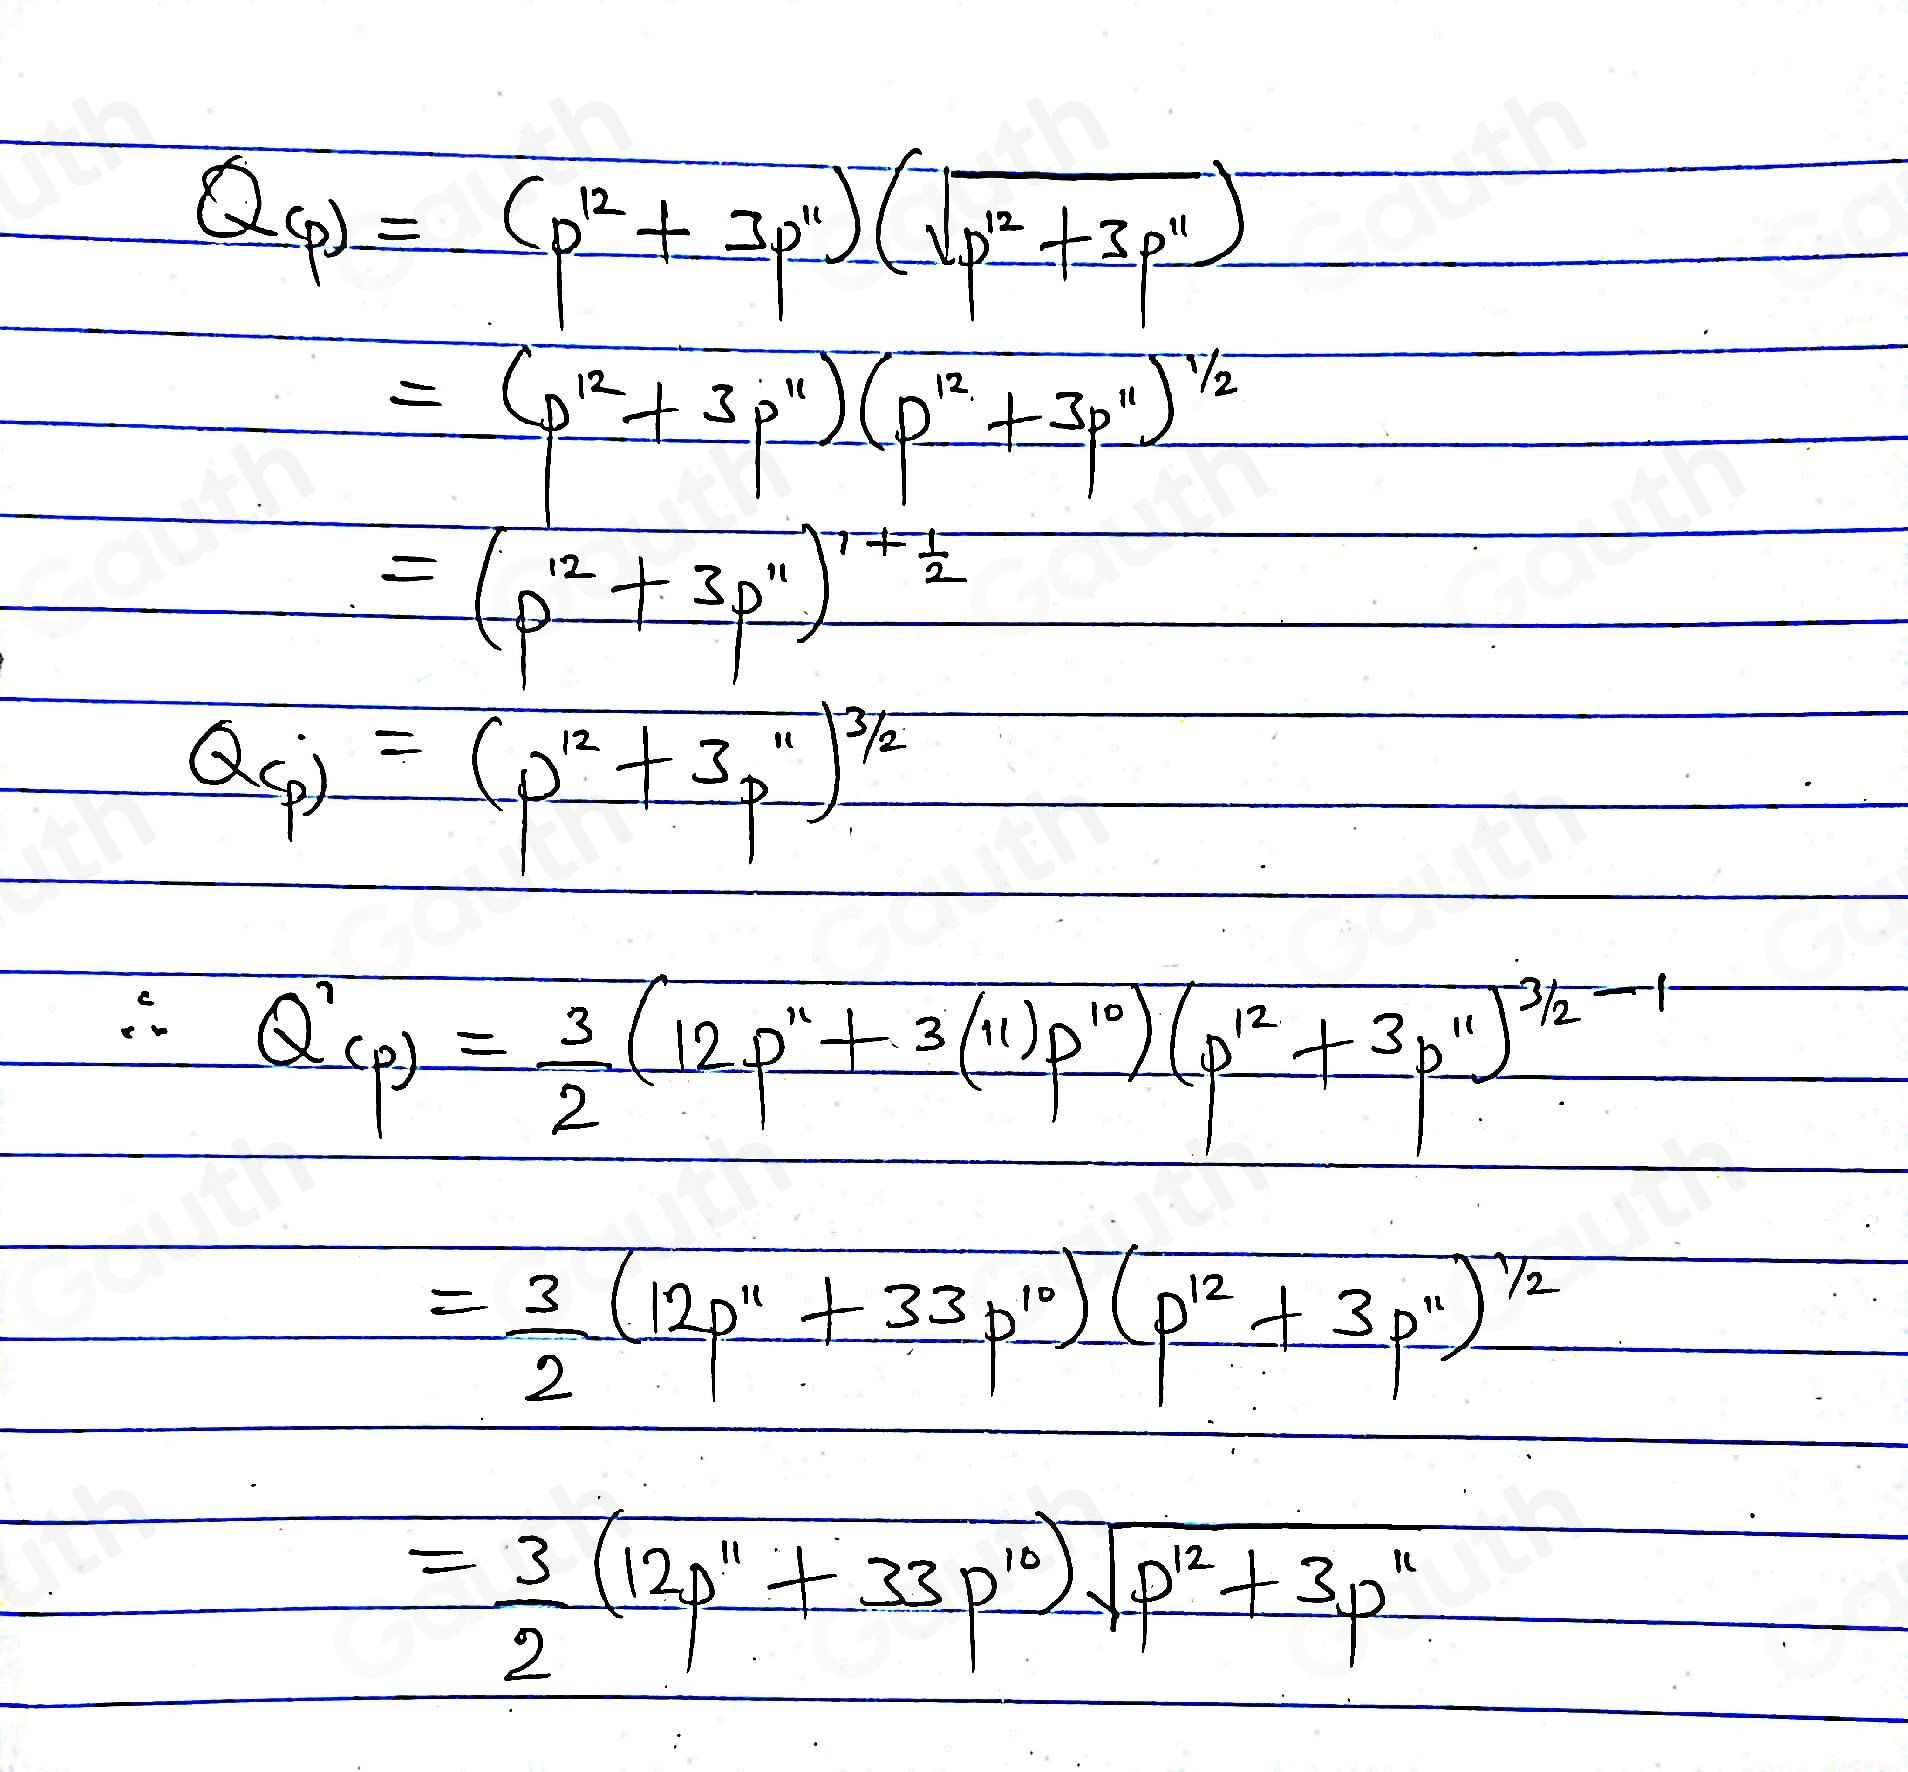 Q(p) = (p¹² + 3p¹¹)(√(p¹² + 3p¹¹))
= (p¹² + 3p¹¹)(p¹² + 3p¹¹)^1/2
= (p¹² + 3p¹¹)^1+1/2
Q(p) = (p¹² + 3p¹¹)^3/2
∴ Q'(p) = 3/2 (12p¹¹ + 3(11)p¹⁰)(p¹² + 3p¹¹)^3/2 - 1
= 3/2 (12p¹¹ + 33p¹⁰)(p¹² + 3p¹¹)^1/2
= 3/2 (12p¹¹ + 33p¹⁰)√(p¹² + 3p¹¹)
Gauth